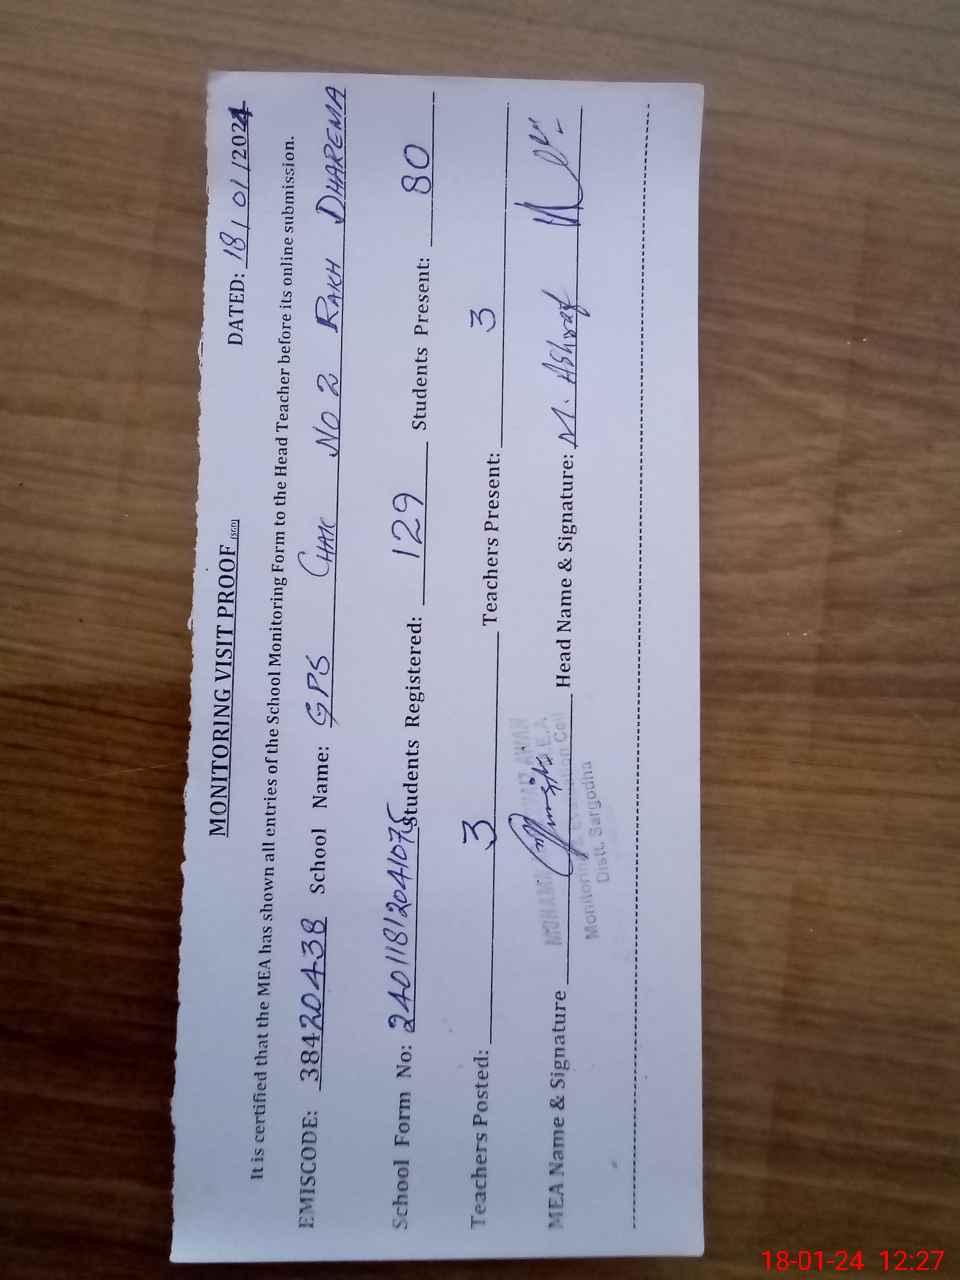 MONITORING VISIT PROOF (SGD)
DATED: 18/01/2024
It is certified that the MEA has shown all entries of the School Monitoring Form to the Head Teacher before its online submission.
EMISCODE: 38420438 School Name: GPS CHAK NO 2 RAKH DHAREMA
School Form No: 24011812041075 Students Registered: 129 Students Present: 80
Teachers Posted: 3 Teachers Present: 3
MEA Name & Signature Head Name & Signature: M. Ashraf
AWAN
M.E.A
Distt. Sargodha
18-01-24 12:27